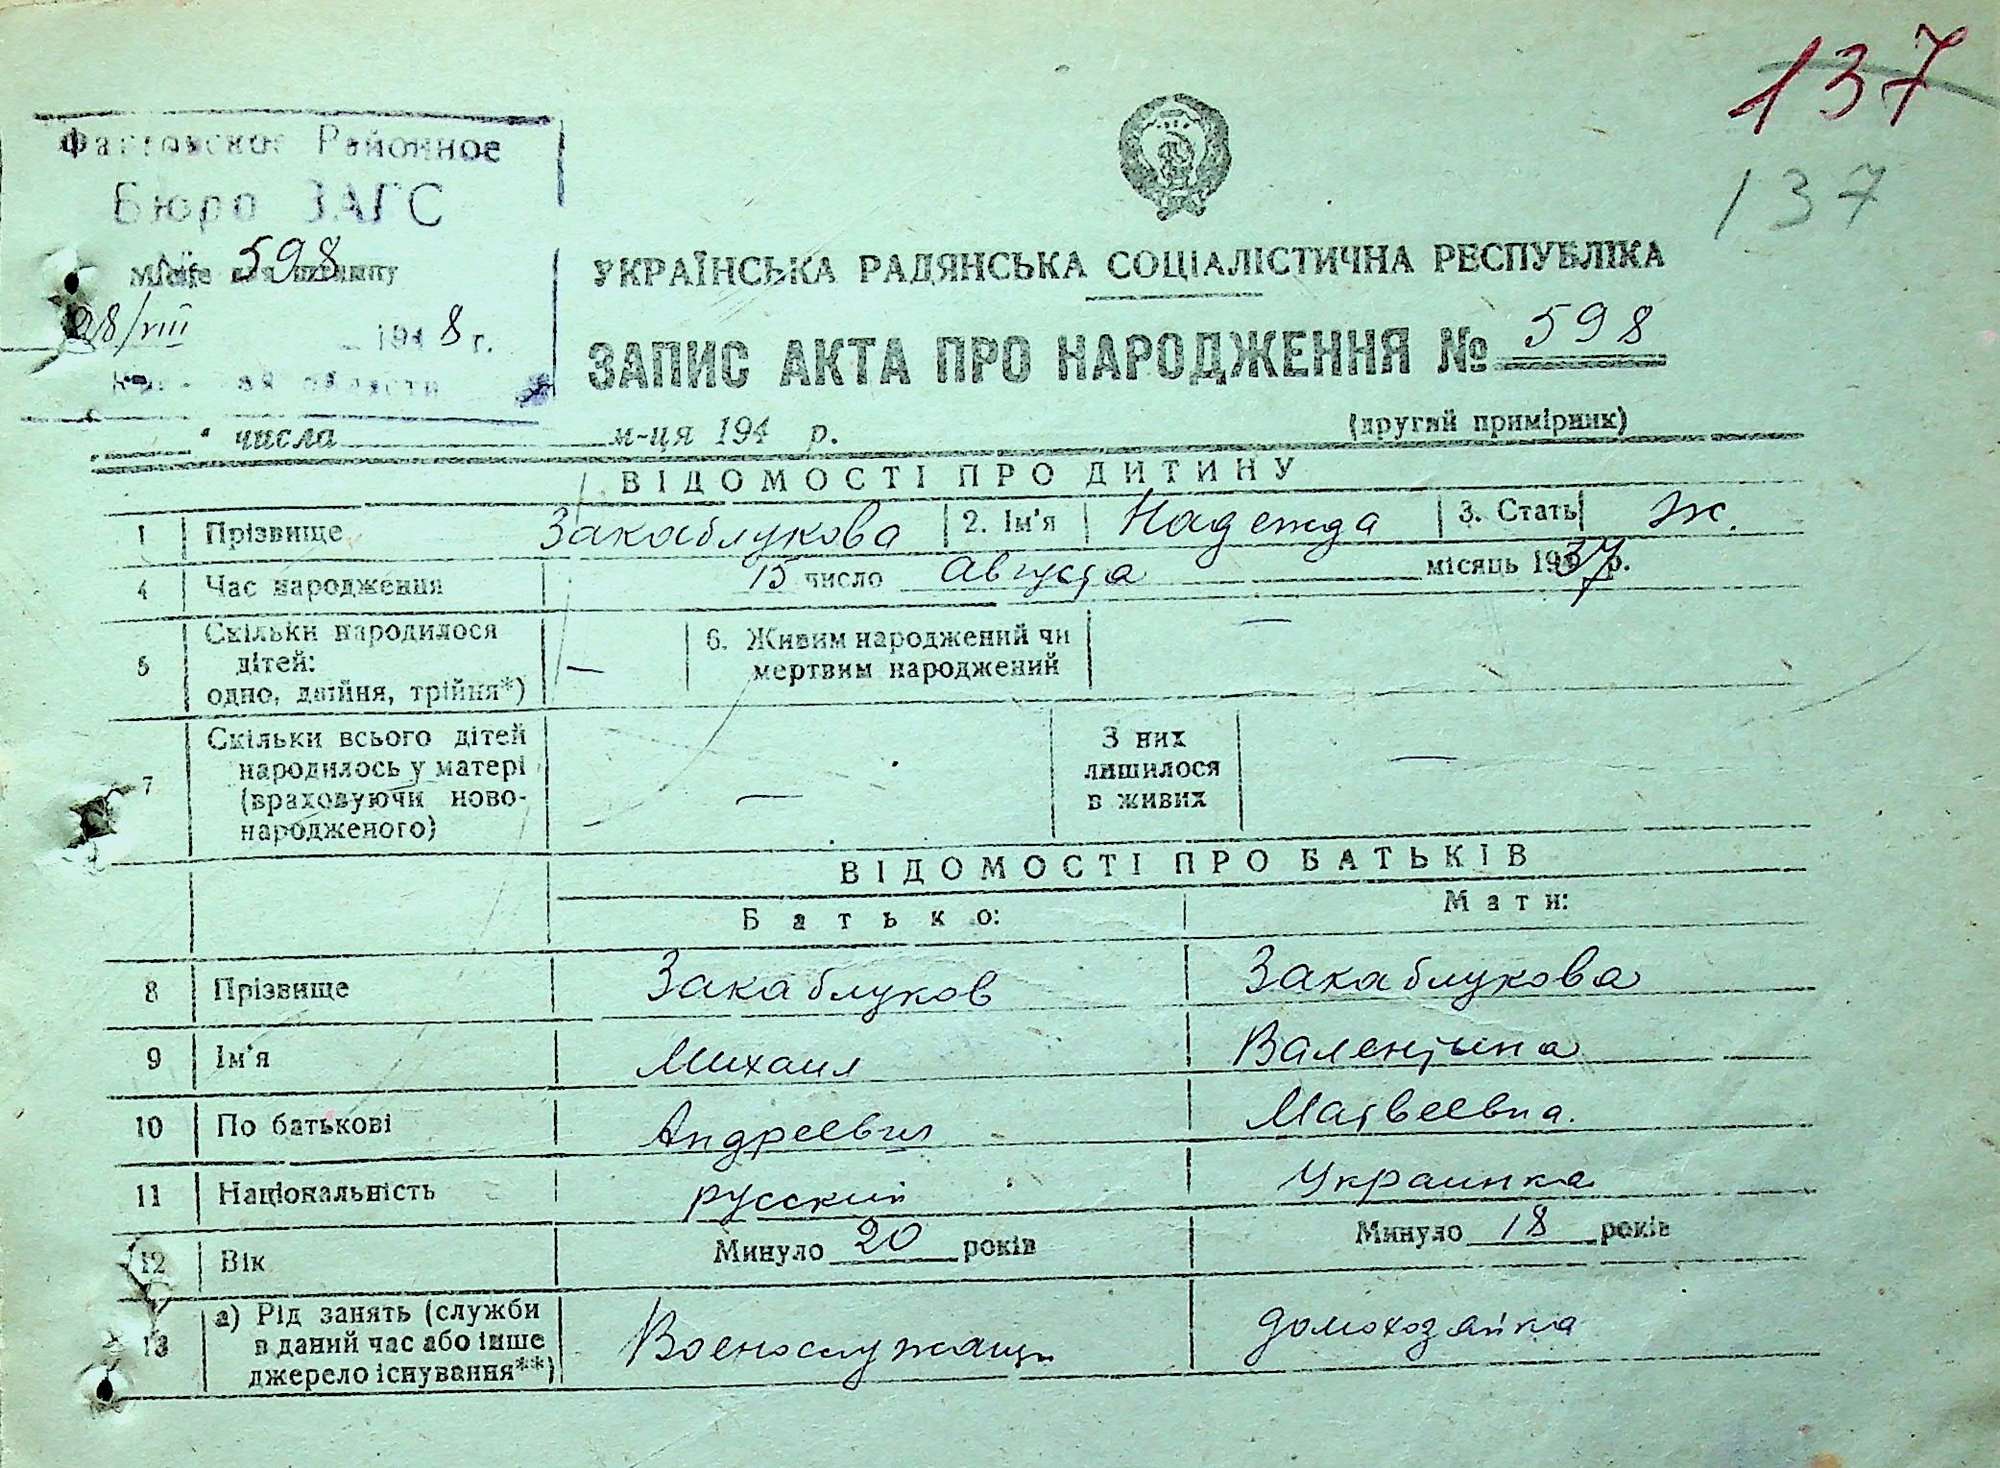 137
137
Фастовское Районное
Бюро ЗАГС
Місце для штампу
598
28/VIII 1948 г.
области
УКРАЇНСЬКА РАДЯНСЬКА СОЦІАЛІСТИЧНА РЕСПУБЛІКА
ЗАПИС АКТА ПРО НАРОДЖЕННЯ № 598
числа м-ця 194 р. (другий примірник)
ВІДОМОСТІ ПРО ДИТИНУ
1 Прізвище Закаблукова 2. Ім'я Надежда 3. Стать Ж.
4 Час народження 15 число Августа місяць 1937 р.
5 Скільки народилося дітей: одно, двійня, трійня*) — 6. Живим народжений чи мертвим народжений —
7 Скільки всього дітей народилось у матері (враховуючи новонародженого) — З них лишилося в живих —
ВІДОМОСТІ ПРО БАТЬКІВ
Батько: Мати:
8 Прізвище Закаблуков Закаблукова
9 Ім'я Михаил Валентина
10 По батькові Андреевич Матвеевна.
11 Національність русский Украинка
12 Вік Минуло 20 років Минуло 18 років
13 а) Рід занять (служби в даний час або інше джерело існування**) Военослужащи домохозайка